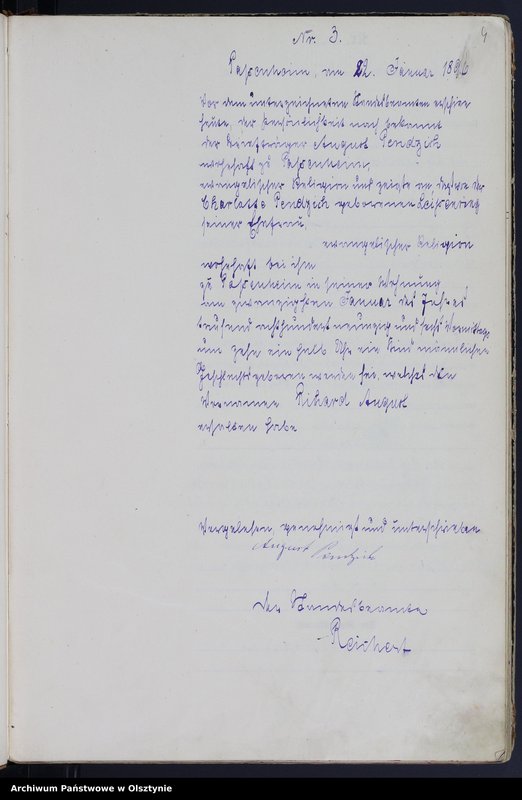 Nr. 3.
4
Passenheim, am 22. Januar 1896
Vor dem unterzeichneten Standesbeamten erschien
heute, der Persönlichkeit nach bekannt
der August Pendzich
wohnhaft zu Passenheim,
evangelischer Religion und zeigte an, daß von der
Charlotte Pendzich geborenen
seiner Ehefrau,
evangelischer Religion
wohnhaft bei ihm
zu Passenheim in seiner Wohnung
am zwanzigsten Januar des Jahres
tausend achthundert neunzig und sechs Vormittags
um zehn ein halb Uhr ein Kind männlichen
Geschlechts geboren worden sei, welches den
Vornamen Richard August
erhalten habe
Vorgelesen, genehmigt und unterschrieben
August Pendzich
Der Standesbeamte
Reichert
Archiwum Państwowe w Olsztynie